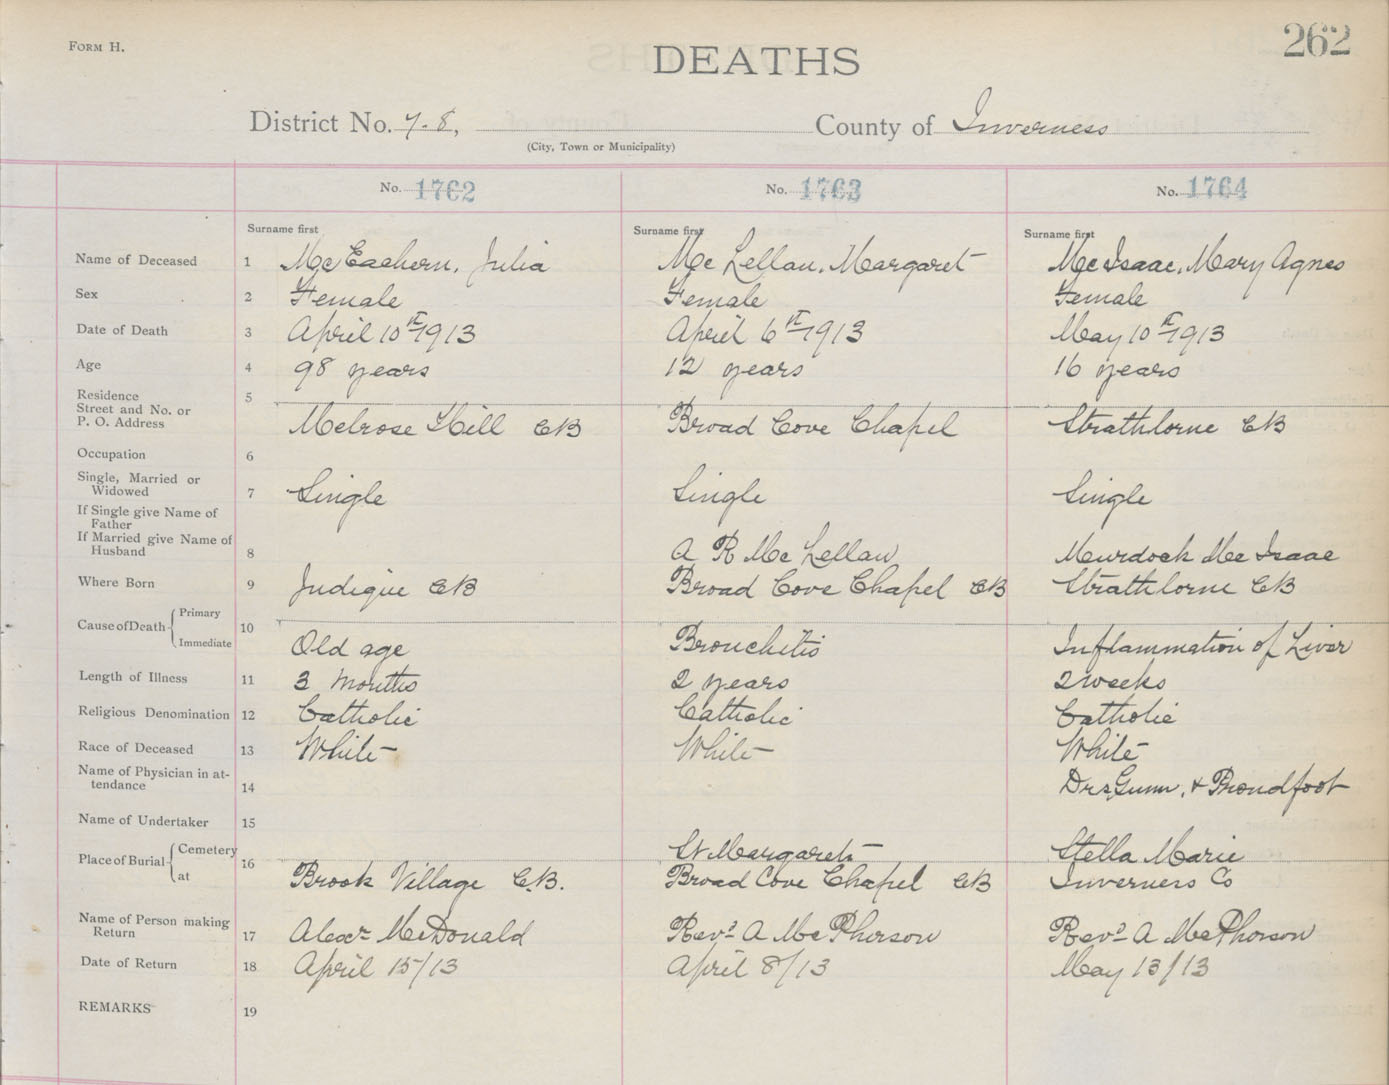 FORM H.
262
DEATHS
District No. 7-8, County of Inverness
(City, Town or Municipality)
No. 1762 No. 1763 No. 1764
Surname first Surname first Surname first
Name of Deceased 1 McEachern, Julia McLellan, Margaret McIsaac, Mary Agnes
Sex 2 Female Female Female
Date of Death 3 April 10th 1913 April 6th 1913 May 10th 1913
Age 4 98 years 12 years 16 years
Residence 5
Street and No. or
P. O. Address Melrose Hill CB Broad Cove Chapel Strathlorne CB
Occupation 6
Single, Married or
Widowed 7 Single Single Single
If Single give Name of
Father
If Married give Name of
Husband 8 A R McLellan Murdock McIsaac
Where Born 9 Judique CB Broad Cove Chapel CB Strathlorne CB
Cause of Death Primary 10
Immediate Old age Bronchitis Inflammation of Liver
Length of Illness 11 3 Months 2 years 2 weeks
Religious Denomination 12 Catholic Catholic Catholic
Race of Deceased 13 White White White
Name of Physician in at-
tendance 14 Drs Gunn, & Proudfoot
Name of Undertaker 15
Place of Burial Cemetery 16 St Margarets Stella Marie
at Brook Village C.B. Broad Cove Chapel CB Inverness Co
Name of Person making
Return 17 Alexr McDonald Revd A McPherson Revd A McPherson
Date of Return 18 April 15/13 April 8/13 May 13/13
REMARKS 19